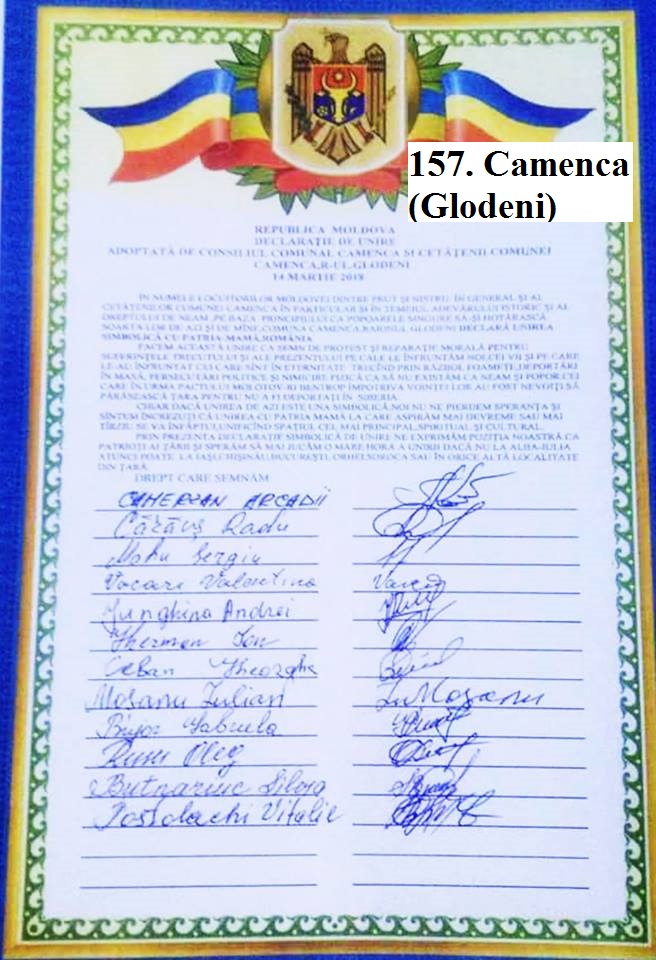 157. Camenca
(Glodeni)
REPUBLICA MOLDOVA
DECLARAȚIE DE UNIRE
ADOPTATĂ DE CONSILIUL COMUNAL CAMENCA ȘI CETĂȚENII COMUNEI
CAMENCA,R-UL.GLODENI
14 MARTIE 2018
ÎN NUMELE LOCUITORILOR MOLDOVEI DINTRE PRUT ȘI NISTRU ÎN GENERAL ȘI AL
CETĂȚENILOR COMUNEI CAMENCA ÎN PARTICULAR ȘI ÎN TEMEIUL ADEVĂRULUI ISTORIC ȘI AL
DREPTULUI DE NEAM ,PE BAZA PRINCIPIULUI CA POPOARELE SINGURE SĂ-ȘI HOTĂRASCĂ
SOARTA LOR DE AZI ȘI DE MÎNE,COMUNA CAMENCA,RAIONUL GLODENI DECLARĂ UNIREA
SIMBOLICĂ CU PATRIA-MAMĂ,ROMÂNIA.
FACEM ACEASTĂ UNIRE CA SEMN DE PROTEST ȘI REPARAȚIE MORALĂ PENTRU
SUFERINȚELE TRECUTULUI ȘI ALE PREZENTULUI PE CALE LE ÎNFRUNTĂM NOI,CEI VII ȘI PE CARE
LE-AU ÎNFRUNTAT CEI CARE SÎNT ÎN ETERNITATE TRECÎND PRIN RĂZBOI,FOAMETE,DEPORTĂRI
ÎN MASĂ, PERSECUTĂRI POLITICE ȘI NIMICIRE FIZICĂ,CA SĂ NU EXISTĂM CA NEAM ȘI POPOR,CEI
CARE ÎN URMA PACTULUI MOLOTOV-RIBENTROP ÎMPOTRIVA VOINȚEI LOR AU FOST NEVOIȚI SĂ
PĂRĂSEASCĂ ȚARA PENTRU NU A FI DEPORTAȚI ÎN SIBERIA.
CHIAR DACĂ UNIREA DE AZI ESTE UNA SIMBOLICĂ,NOI NU NE PIERDEM SPERANȚA ȘI
SÎNTEM ÎNCREZUȚI CĂ UNIREA CU PATRIA MAMĂ LA CARE ASPIRĂM MAI DEVREME SAU MAI
TÎRZIU SE VA ÎNFĂPTUI,UNIFICÎND SPAȚIUL CEL MAI PRINCIPAL,SPIRITUAL ȘI CULTURAL.
PRIN PREZENTA DECLARAȚIE SIMBOLICĂ DE UNIRE NE EXPRIMĂM POZIȚIA NOASTRĂ CA
PATRIOȚI AI ȚĂRII ȘI SPERĂM SĂ MAI JUCĂM O MARE HORA A UNIRII DACĂ NU LA ALBA-IULIA
ATUNCI POATE LA IAȘI,CHIȘINĂU,BUCUREȘTI, ORHEI,SOROCA SAU ÎN ORICE ALTĂ LOCALITATE
DIN ȚARĂ.
DREPT CARE SEMNĂM
CAMERZAN ARCADII
Cărăuș Radu
Sergiu
Valentina
Junghina Andrei
Gherman Ion
Ceban Gheorghe
Moșanu Iulian Iu Moșanu
Bujor Gabriela
Rusu Oleg
Butnariuc Silvia
Postolachi Vitalie